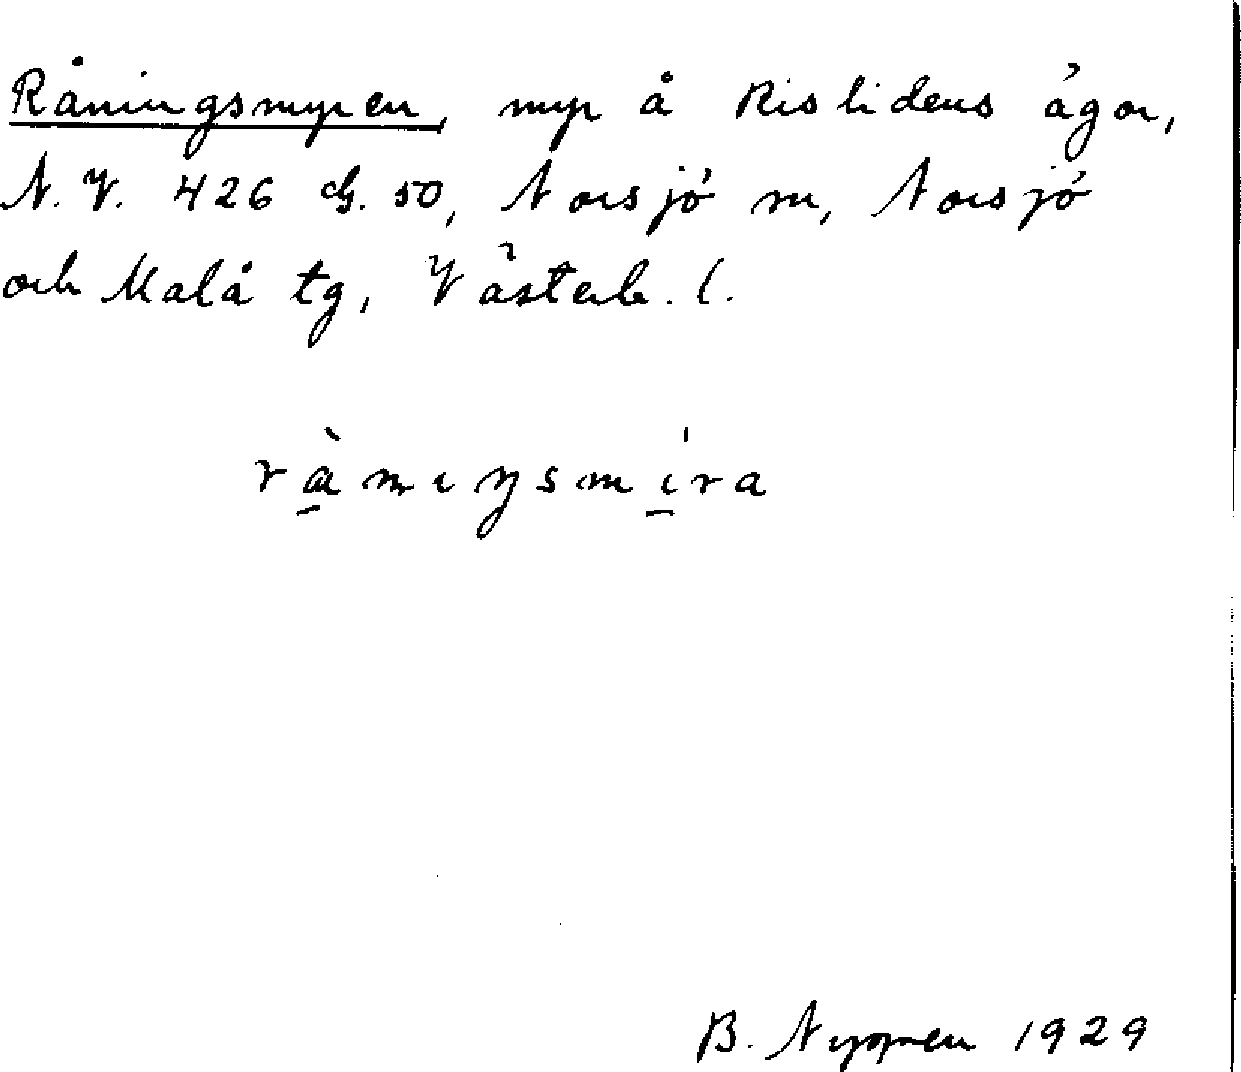 Råningsmyren, myr å Rislidens ägor,
N.V. 426 G. 50, Norsjö m, Norsjö
och Malå tg, Västerb. l.
rànıŋsmíra
B. Nyman 1929